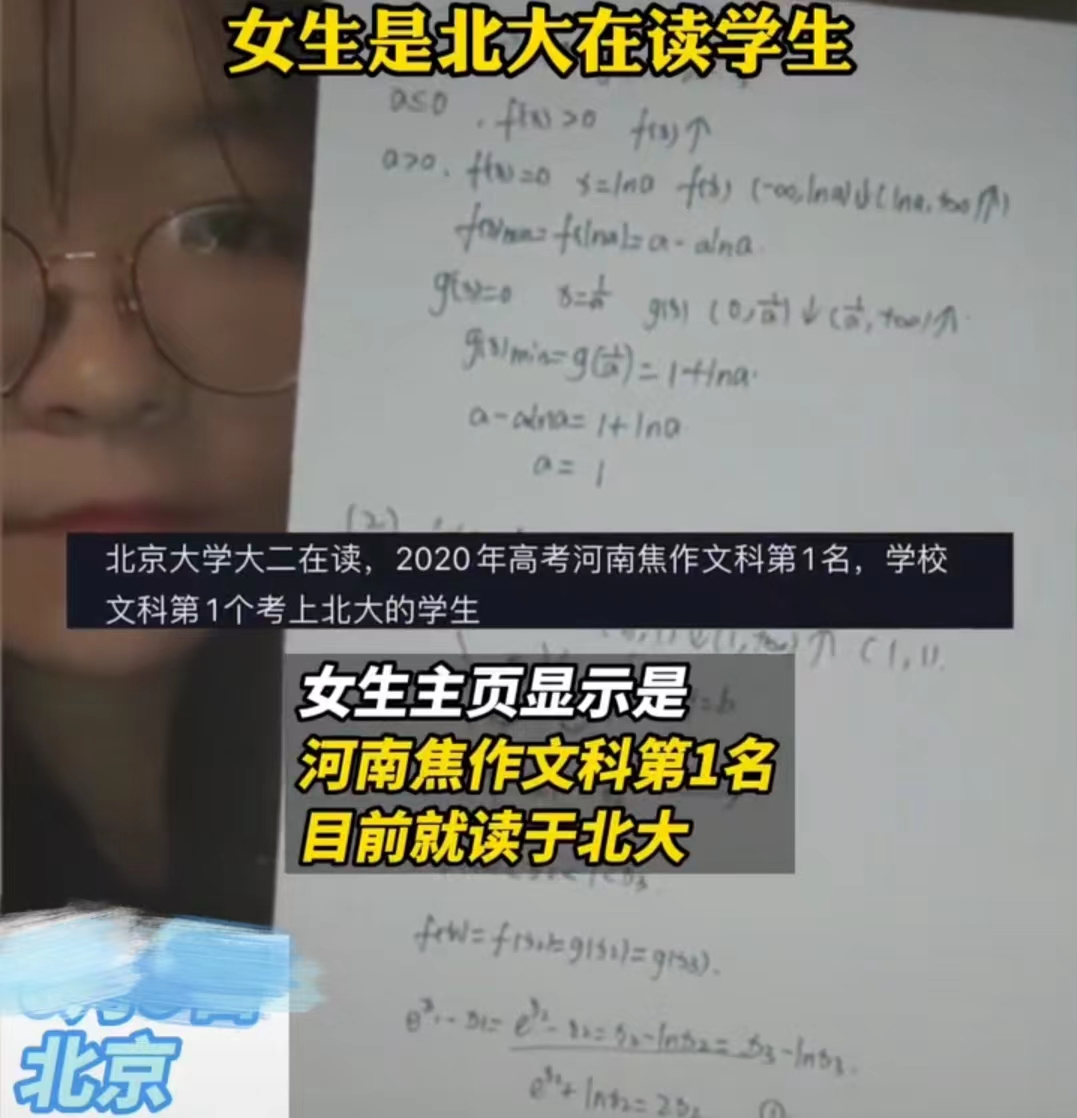 女生是北大在读学生
a≤0, f'(x)>0 f(x)↑
a>0, f'(x)=0 x=lna f(x) (-∞,lna)↓(lna,+∞)↑
f(x)min=f(lna)=a-alna.
g'(x)=0 x=1/a g(x) (0,1/a)↓(1/a,+∞)↑.
g(x)min=g(1/a)=1+lna.
a-alna=1+lna
a=1
(2)
北京大学大二在读,2020年高考河南焦作文科第1名,学校
文科第1个考上北大的学生
↓(1,+∞)↑ (1,1).
女生主页显示是
=b
河南焦作文科第1名
目前就读于北大
f(x1)=f(x2)=g(x2)=g(x3).
e^x1-x1=e^x2-x2=x2-lnx2=x3-lnx3.
e^x2+lnx2=2x2 ①
北京